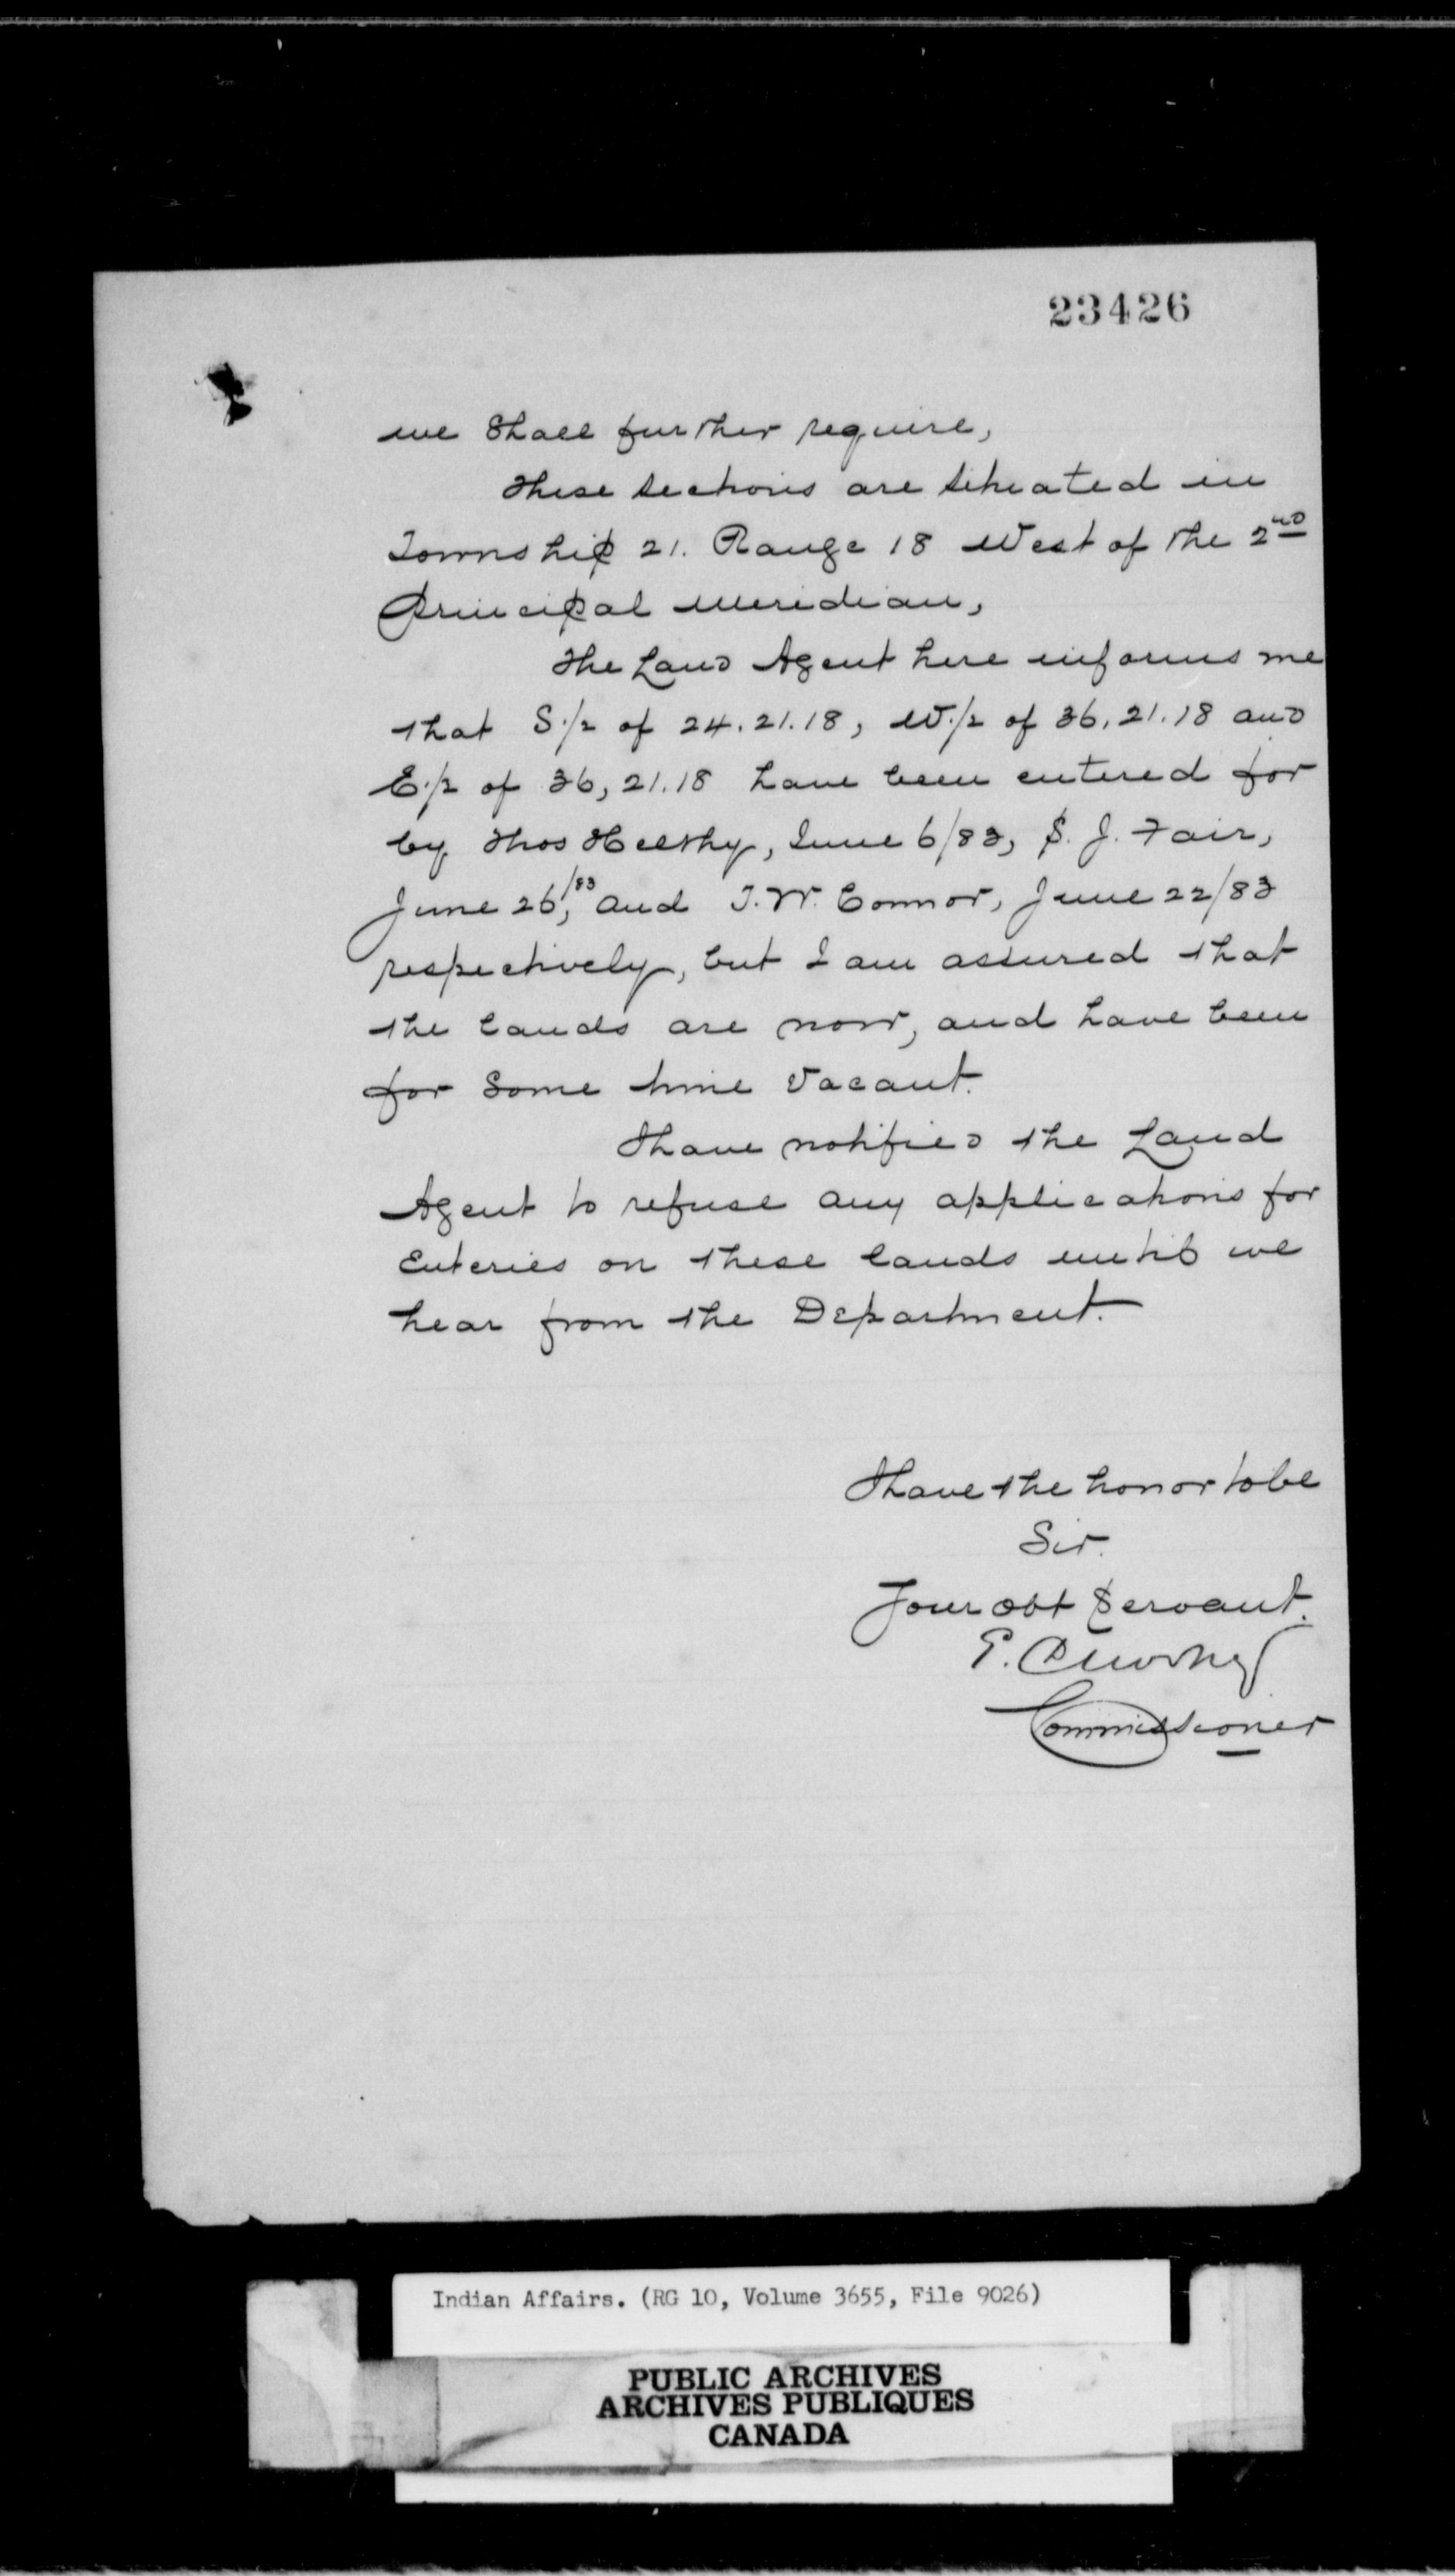 23426
we shall further require,
These sections are situated in
Township 21. Range 18 West of the 2nd
Principal Meridian,
The Land Agent here informs me
that S.½ of 24.21.18, W.½ of 36.21.18 and
E.½ of 36,21.18 have been entered for
by Thos , June 6/83, S. J. Fair,
June 26/83, and T. W. Connor, June 22/83
respectively, but I am assured that
the lands are now, and have been
for some time vacant.
I have notified the Land
Agent to refuse any applications for
Enteries on these lands until we
hear from the Department.
I have the honor to be
Sir.
Your obt Servant.
E. Dewdney
Commissioner
Indian Affairs. (RG 10, Volume 3655, File 9026)
PUBLIC ARCHIVES
ARCHIVES PUBLIQUES
CANADA